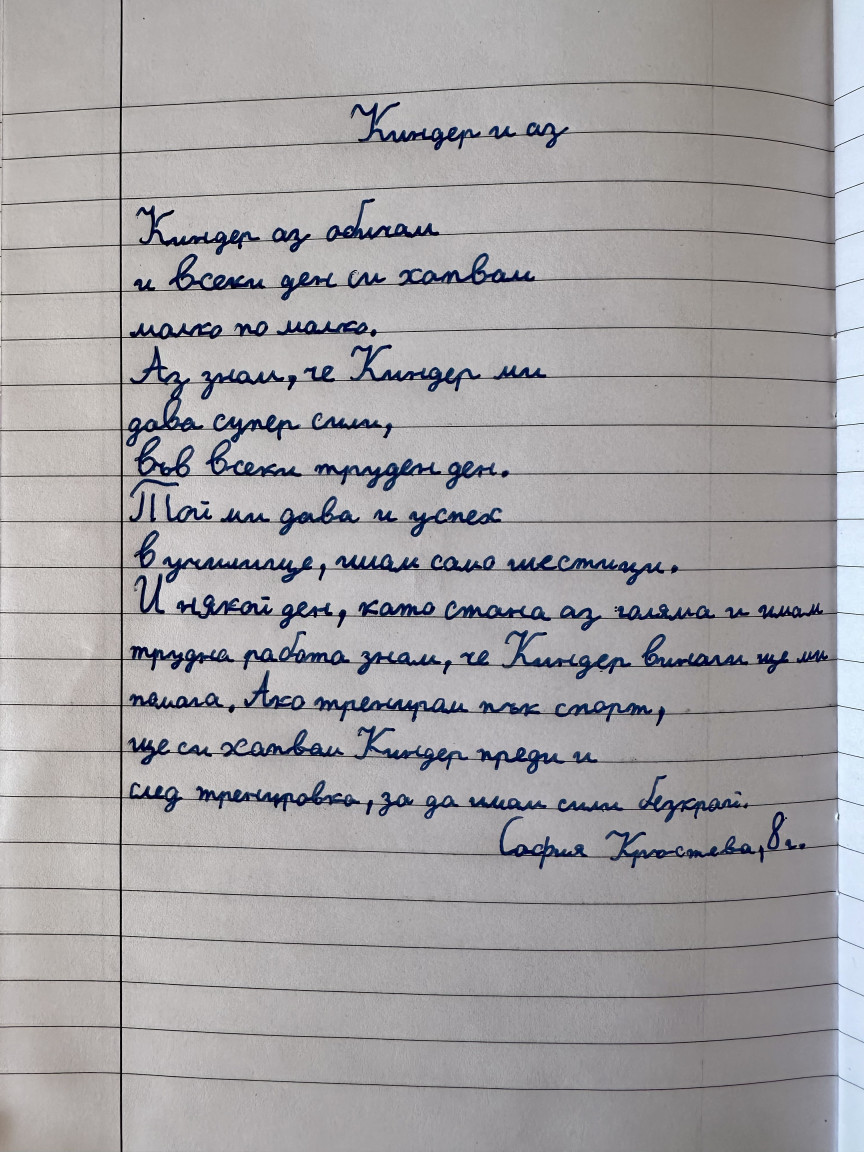 Киндер и аз
Киндер аз обичам
и всеки ден си хапвам
малко по малко.
Аз знам, че Киндер ми
дава супер сили,
във всеки труден ден.
Той ми дава и успех
в училище, имам само шестици.
И някой ден, като стана аз голяма и имам
трудна работа знам, че Киндер винаги ще ми
помага. Ако тренирам пък спорт,
ще си хапвам Киндер преди и
след тренировка, за да имам сили безкрай.
София Кръстева, 8 г.